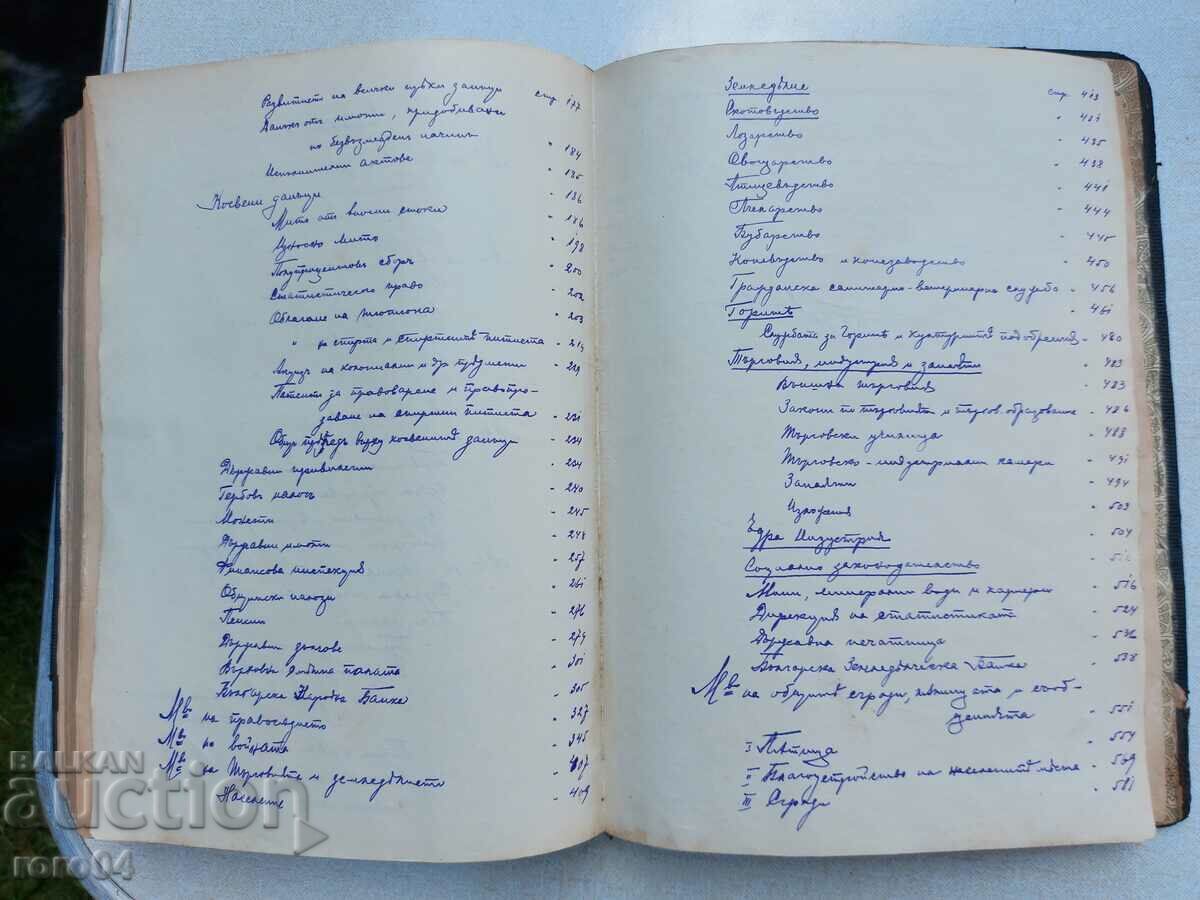 Развитието на всички преки данъци стр. 177
Данъкъ отъ имоти, придобивани
по безвъзмезденъ начинъ " 184
Изпълнителни актове " 185
Косвени данъци - 186
Мито отъ вносни стоки " 186
Износно мито " 198
Полупроцентовъ сборъ - 200
Статистическо право - 202
Облагане на тютюна - 203
" на спирта и спиртнитѣ питиета - 214
Акцизъ на колониални и др. предмети - 229
Патенти за правоварене и правопро-
даване на спиртни питиета - 231
Общъ прегледъ върху косвенитѣ данъци - 234
Държавни привилегии - 234
Гербовъ налогъ - 240
Монети - 245
Държавни имоти - 248
Финансова инспекция - 257
Общински налози - 261
Пенсии - 276
Държавни дългове - 279
Върховна Смѣтна палата - 301
Българска Народна Банка - 305
М-во на правосѫдието - 327
М-во на войната - 345
М-во на Търговията и земледѣлието - 407
Население - 409
Земледѣлие стр. 413
Скотовъдство - 421
Лозарство - 435
Овощарство - 438
Птицевъдство - 441
Пчеларство - 444
Бубарство - 445
Коневъдство и конезаводство - 450
Гражданска санитарно-ветеринарна служба - 456
Горитѣ - 461
Службата за Горитѣ и културнитѣ подобрения - 480
Търговия, индустрия и занаяти - 483
Външна търговия - 483
Закони по търговията и търгов. образование - 486
Търговски училища - 488
Търговско-индустриални камари - 491
Занаяти - 494
Изложения - 503
Едра Индустрия - 504
Социално законодателство - 512
Мини, минерални води и кариери - 516
Дирекция на статистиката - 524
Държавна печатница - 536
Българска Земледѣлческа Банка - 538
М-во на общитѣ сгради, пѫтищата и съоб-
щенията - 551
I Пѫтища - 554
II Благоустройство на населенитѣ мѣста - 569
III Сгради - 581
BALKAN
auction
roro04